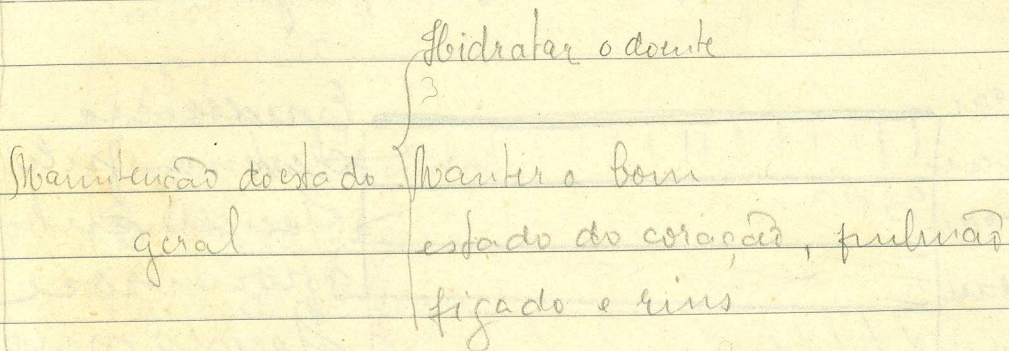 Hidratar o doente
3
Manutenção do estado
geral
Manter o bom
estado do coração, pulmão
figado e rins